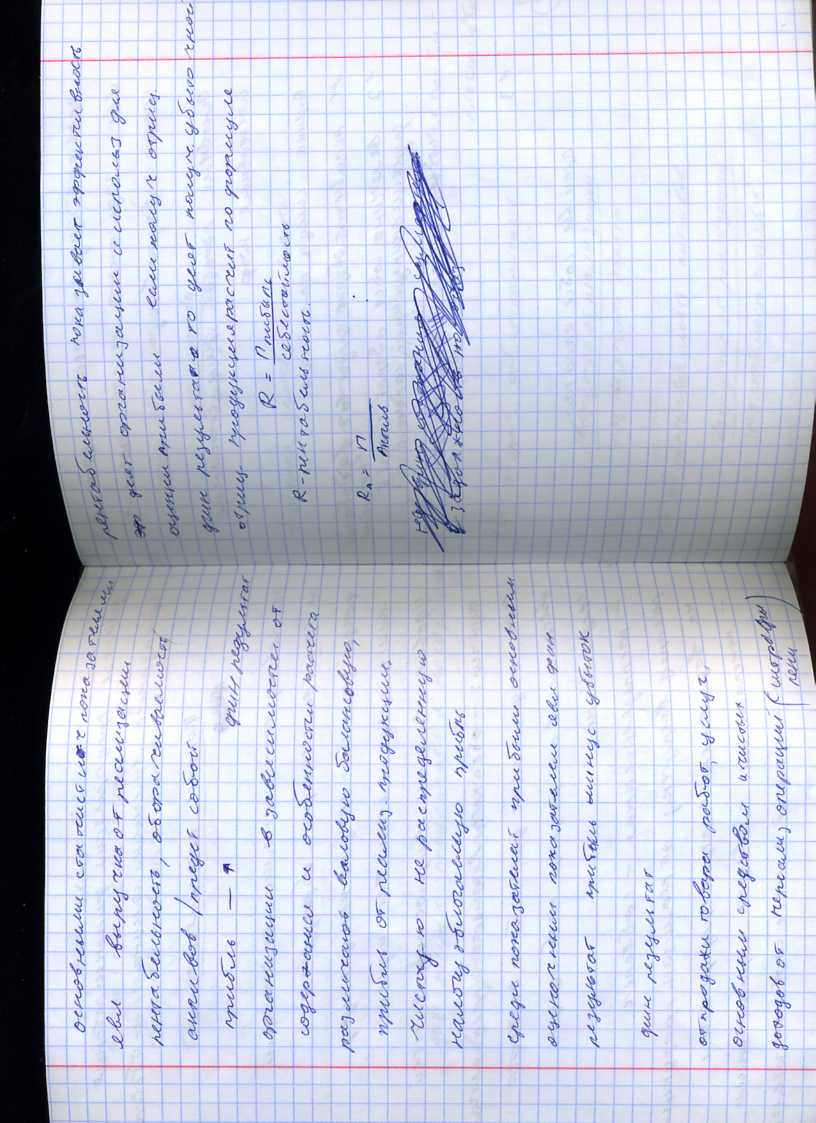 основными статистич показателями
явл выручка от реализации
рентабельность, оборачиваемость
активов / предст собой
прибль — фин результат
организации в зависимости от
содержания и особенности расчета
различают валовую балансовую,
прибыл от реализ продукции,
чистую не распределенную
налогооблогаемую прибль
среди показателей прибыли основным
оценочным показателем явл фин
результат прибыль минус убыток
фин результат
от продажи товара работ, услуг,
основным средствам
доходов от операций (штрафы пени)
рентабельность показывает эффективность
деят организации и использ для
оценки прибыли если получ отриц
фин результат то деят получ убыточной
отриц продукция расчит по формуле
R = Прибыль / себестоимость
R - рентабельность.
Rа = П / Актив